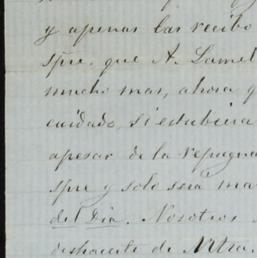 y apenas las recibo
spre. que A. Lamet
mucho mas, ahora q
cuidado, si estubiera
apesar de la repugna
spre y solo sera ma
del Dia. Nosotros
deshacerte de Ntra.